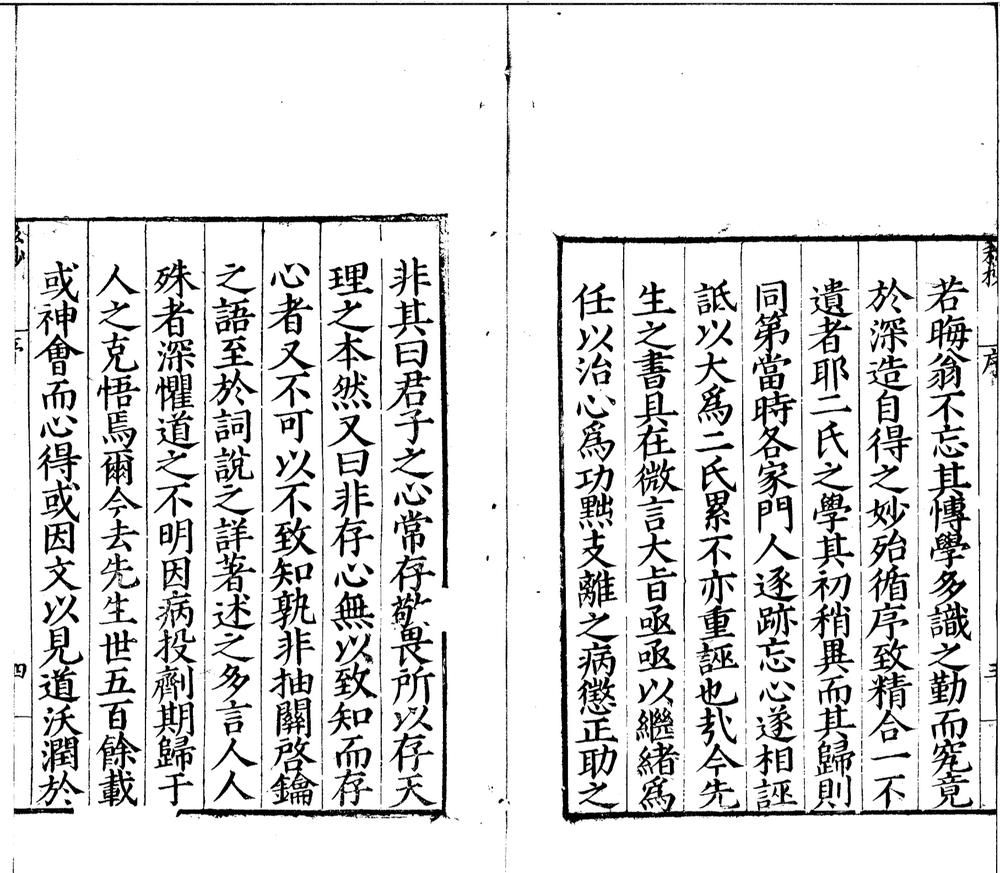 序
三
若晦翁不忘其博學多識之勤而究竟
於深造自得之妙殆循序致精合一不
遺者耶二氏之學其初稍異而其歸則
同第當時各家門人逐跡忘心遂相誣
詆以大爲二氏累不亦重誣也㢤今先
生之書具在微言大旨亟亟以繼緒爲
任以治心爲功黜支離之病懲正助之
非其曰君子之心常存敬畏所以存天
理之本然又曰非存心無以致知而存
心者又不可以不致知孰非抽關啓鑰
之語至於詞說之詳著述之多言人人
殊者深懼道之不明因病投劑期歸于
人之克悟焉爾今去先生世五百餘載
或神會而心得或因文以見道沃潤於
四